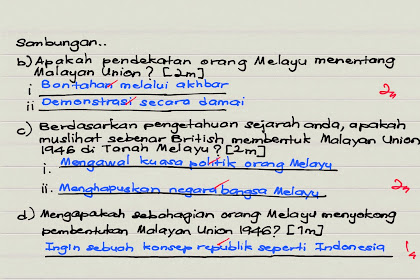 Sambungan..
b) Apakah pendekatan orang Melayu menentang
Malayan Union? [2m]
i Bantahan melalui akhbar
ii Demonstrasi secara damai
2m
c) Berdasarkan pengetahuan sejarah anda, apakah
muslihat sebenar British membentuk Malayan Union
1946 di Tanah Melayu? [2m]
i. Mengawal kuasa politik orang Melayu
ii. Menghapuskan negara bangsa Melayu
2m
d) Mengapakah sebahagian orang Melayu menyokong
pembentukan Malayan Union 1946? [1m]
Ingin sebuah konsep republik seperti Indonesia
1m